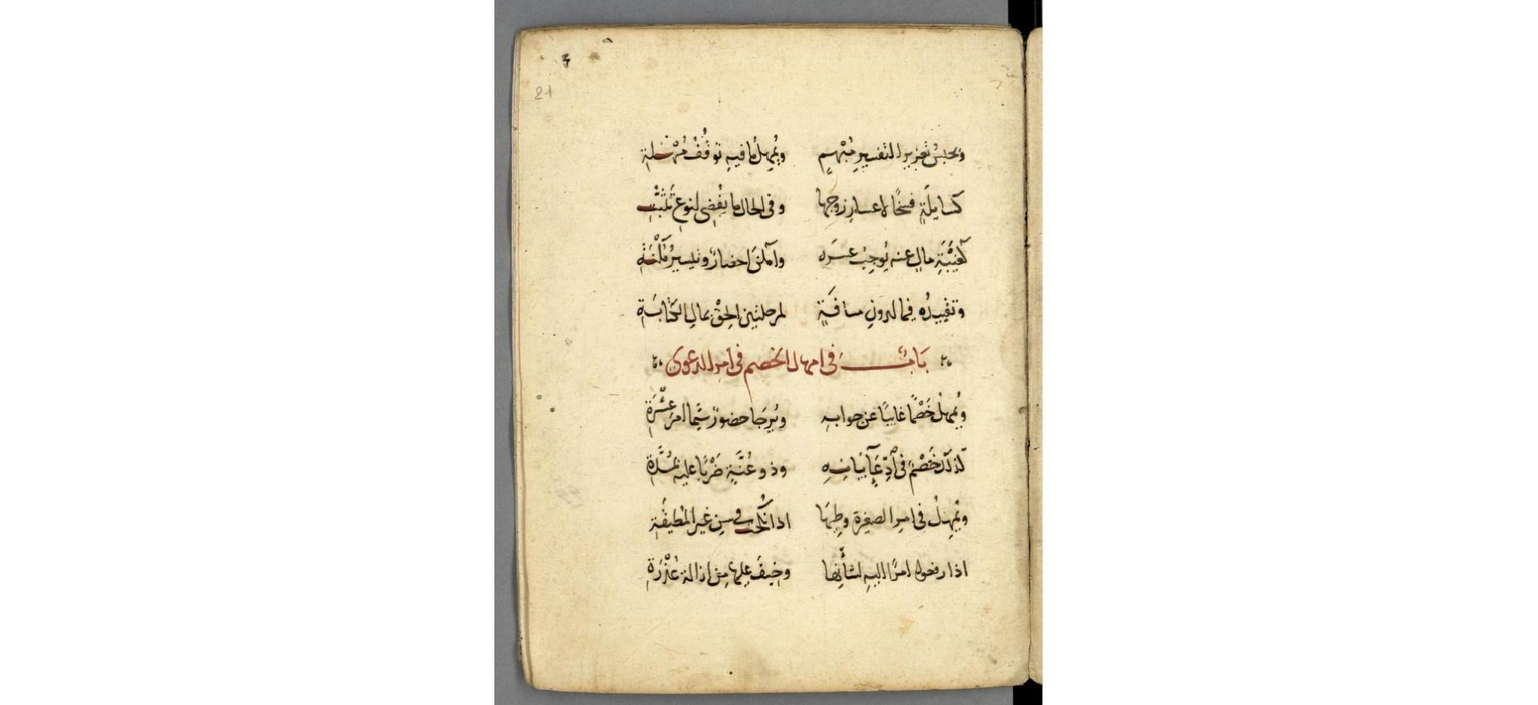 21
ويحبس تعزيرا لتفسير مبهم ويمهل ما فيه توقف مهلة
كسايلة فسخا لاعسار زوجها وفى الحال ما يفضى لنوع تثبت
كغيبة مال عنه يوجب عسره وامكن احضار وتيسير
وتقييده فيما لدون مسافة لمرحلتين الحق بمال الكتابة
باب فى امهال الخصم فى امر الدعوى
ويمهل خصما غايبا عن جوابه ويرجا حضور ثم امر عشرة
كذلك خصم فى ادعا بيانه وذو عنة ضربا عليه لمدة
ويمهل فى امر الصغيرة وطيها اذا نكحت فى سن غير المطيقة
اذا رفعوا امرا اليه لشأنها وخيف عليها من ازالة عذرة